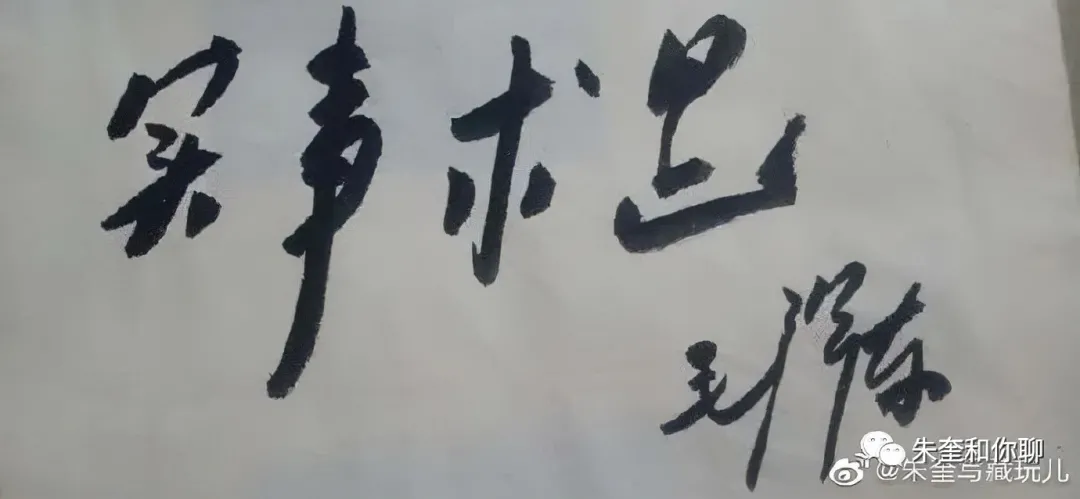 实事求是
毛泽东
朱奎和你聊
@朱奎与藏玩儿